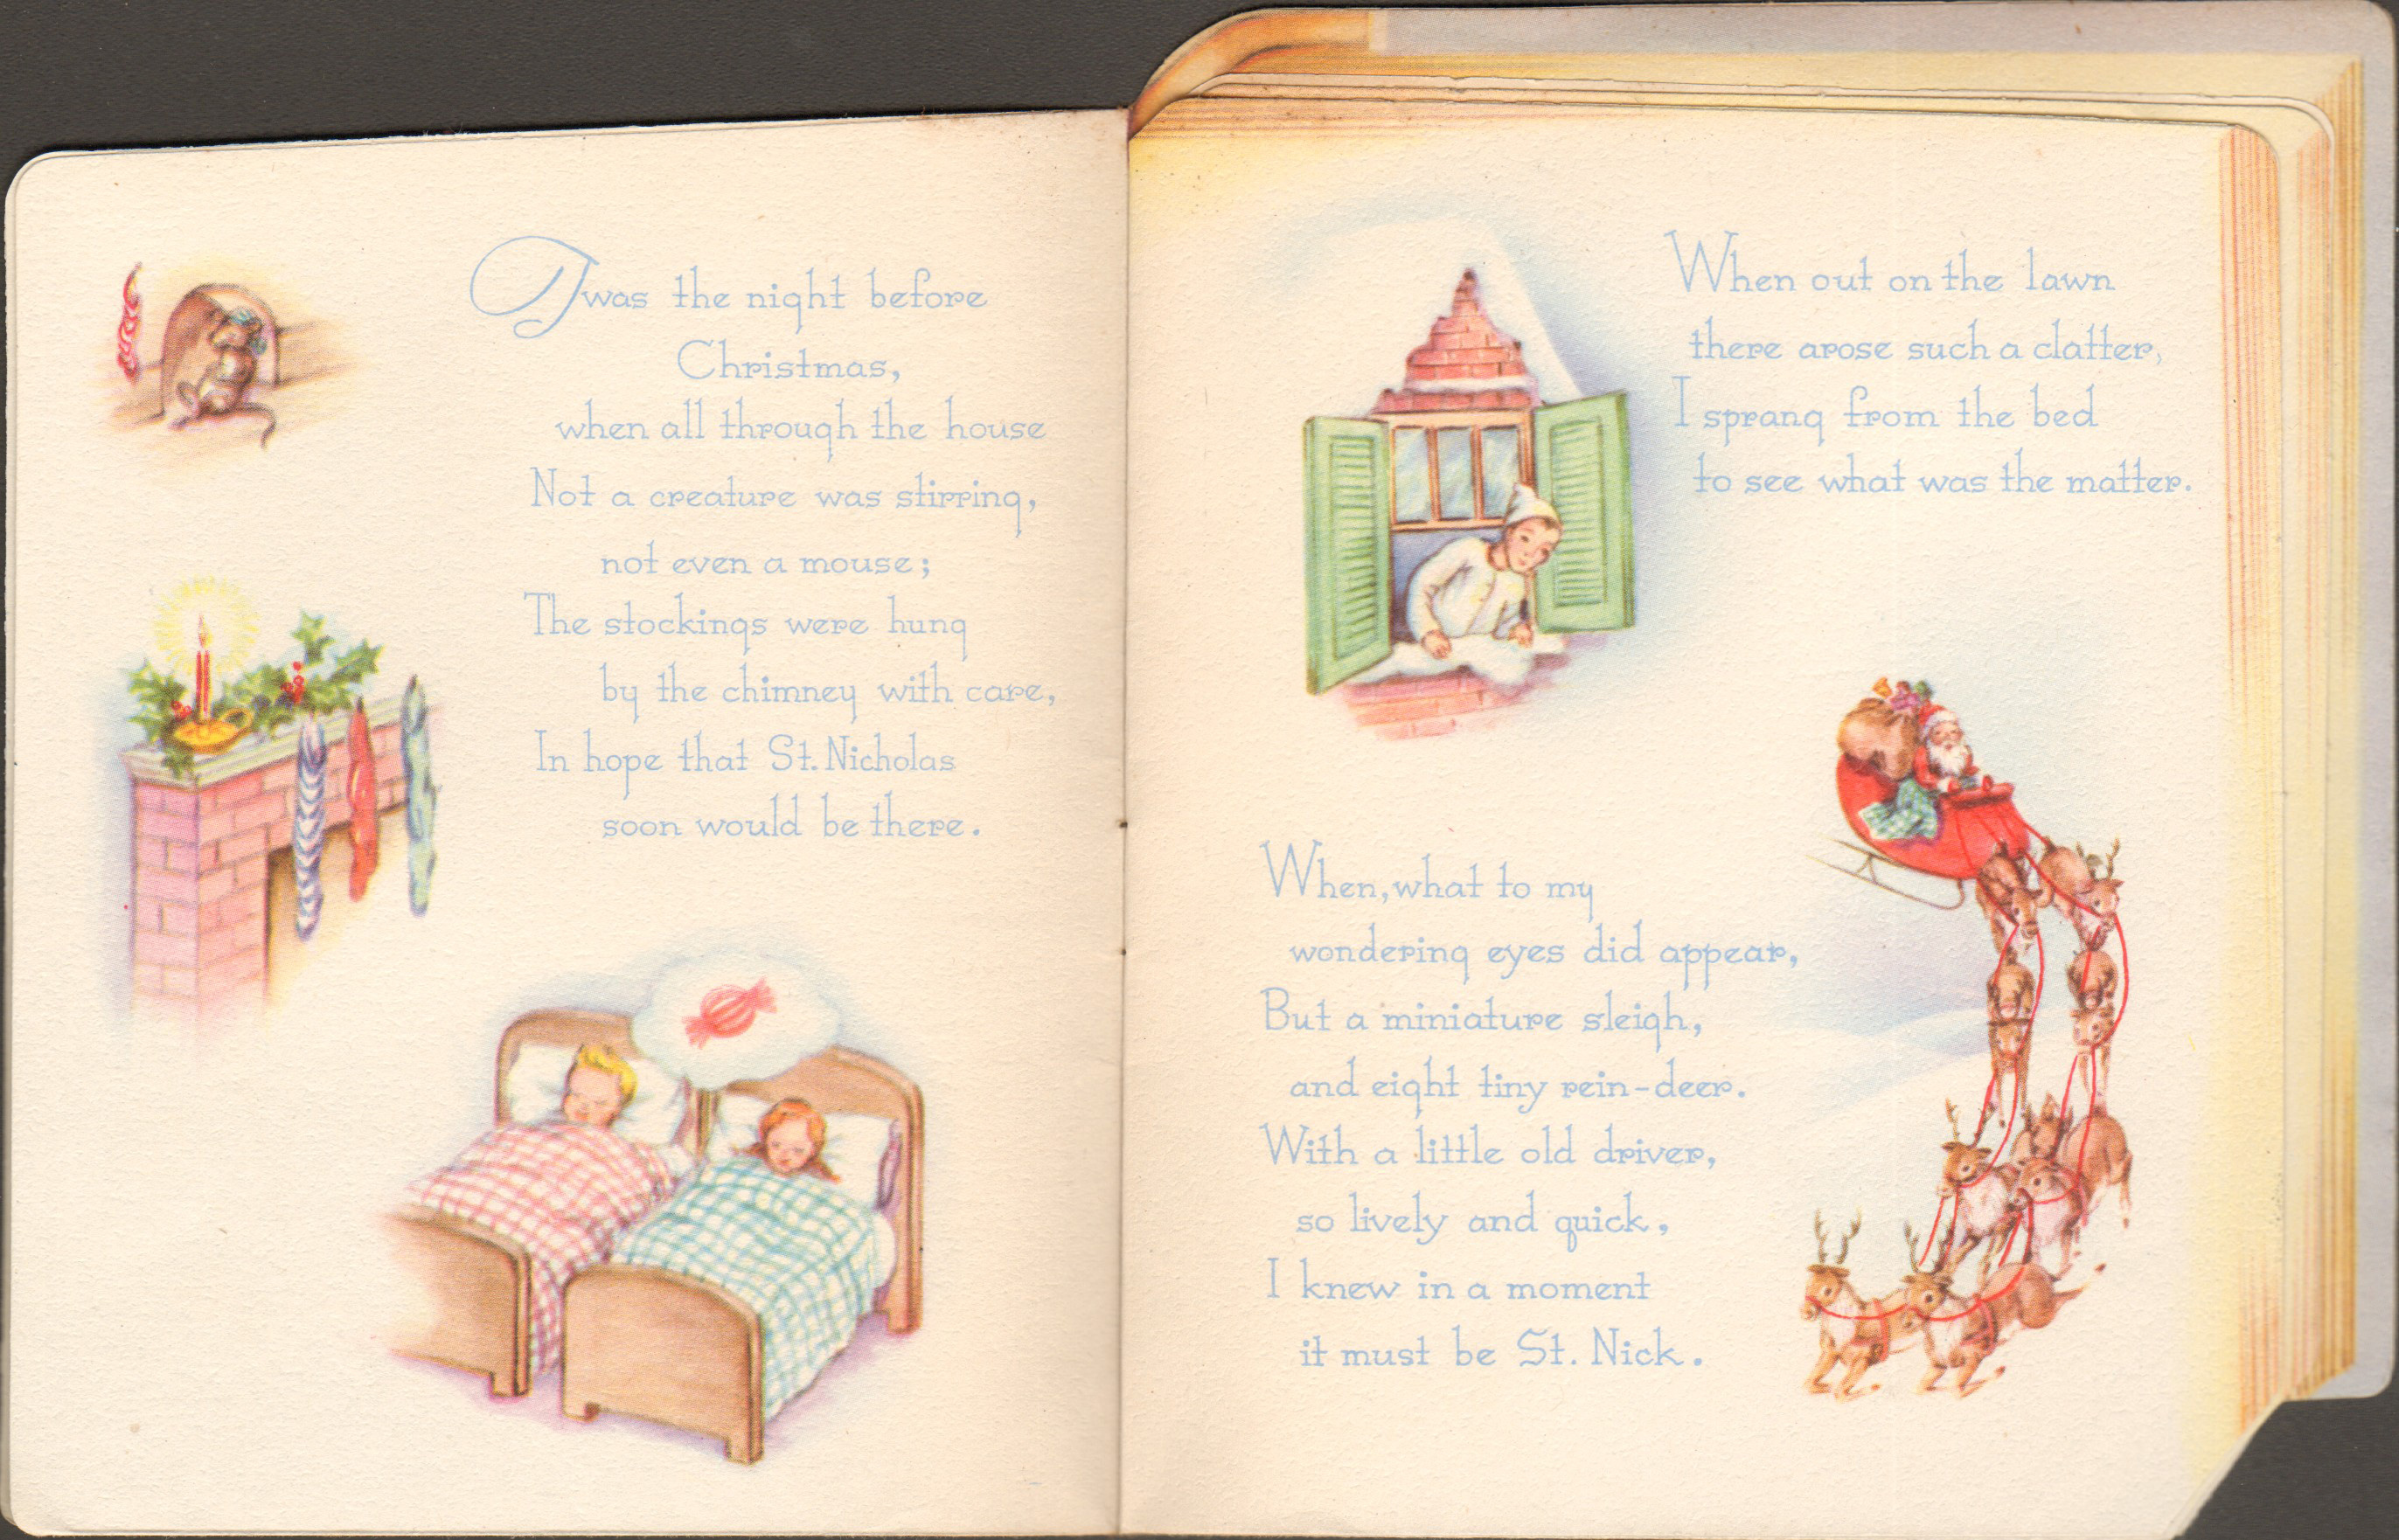 Twas the night before
Christmas,
when all through the house
Not a creature was stirring,
not even a mouse;
The stockings were hung
by the chimney with care,
In hope that St. Nicholas
soon would be there.
When out on the lawn
there arose such a clatter,
I sprang from the bed
to see what was the matter.
When, what to my
wondering eyes did appear,
But a miniature sleigh,
and eight tiny rein-deer.
With a little old driver,
so lively and quick,
I knew in a moment
it must be St. Nick.